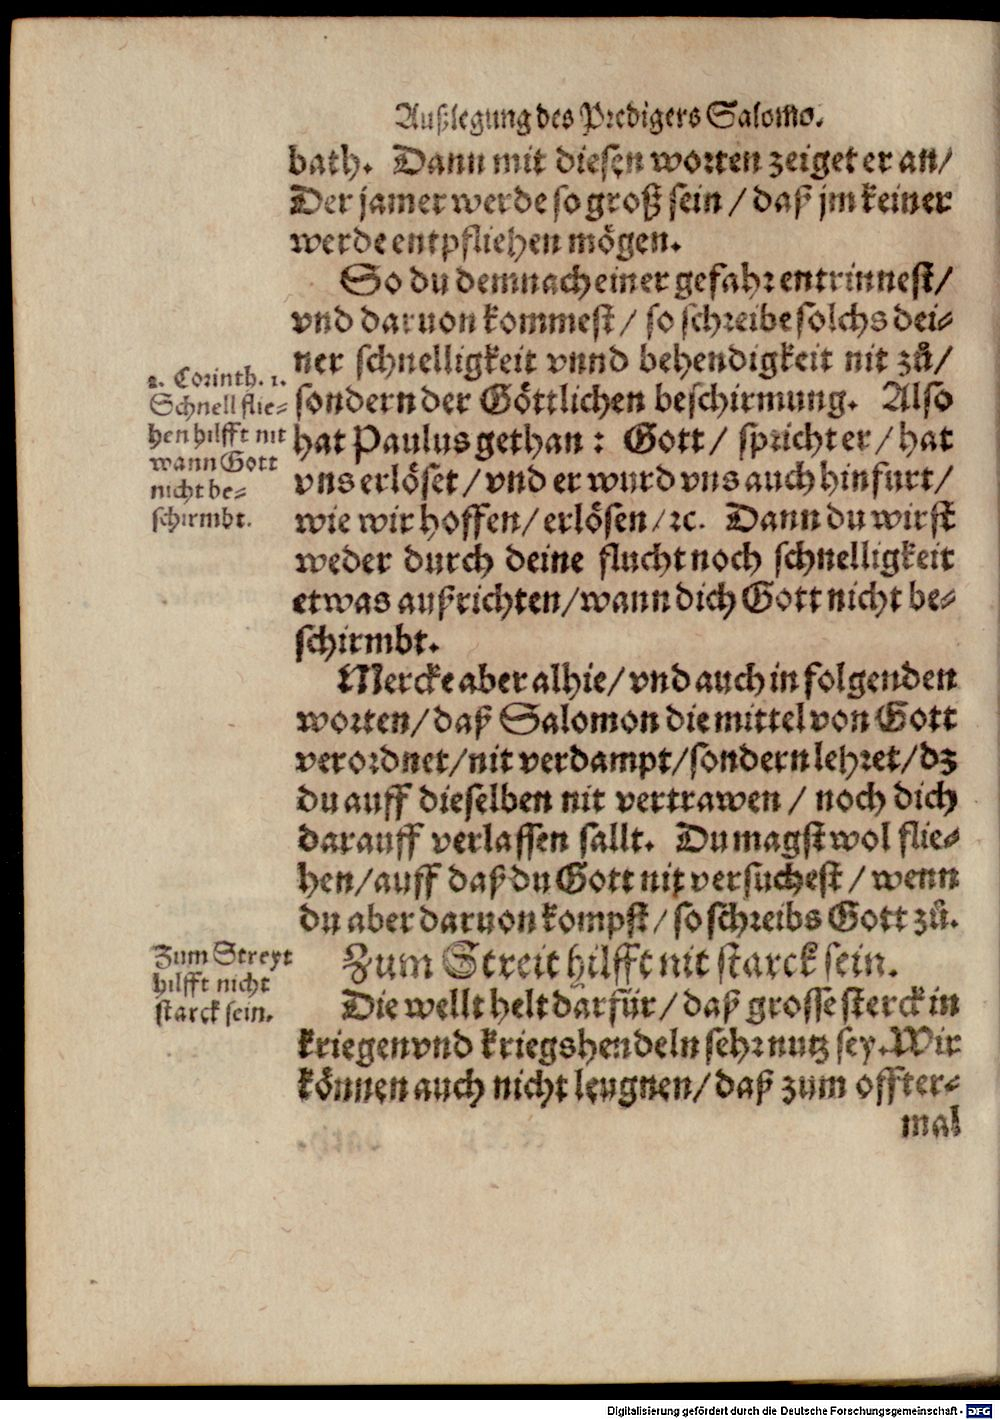 Außlegung des Predigers Salomo.
bath. Dann mit diesen worten zeiget er an/
Der jamer werde so groß sein / daß jm keiner
werde entpfliehen mögen.
So du demnach einer gefahr entrinnest/
vnd daruon kommest / so schreibe solchs dei-
ner schnelligkeit vnnd behendigkeit nit zů/
sondern der Göttlichen beschirmung. Also
hat Paulus gethan : Gott / spricht er / hat
vns erlöset / vnd er wurd vns auch hinfurt /
wie wir hoffen / erlösen / ꝛc. Dann du wirst
weder durch deine flucht noch schnelligkeit
etwas außrichten / wann dich Gott nicht be-
schirmbt.
2. Corinth. 1.
Schnell flie-
hen hilfft nit
wann Gott
nicht be-
schirmbt.
Mercke aber alhie / vnd auch in folgenden
worten / daß Salomon die mittel von Gott
verordnet / nit verdampt / sondern lehret / dz
du auff dieselben nit vertrawen / noch dich
darauff verlassen sallt. Du magst wol flie-
hen / auff daß du Gott nit versuchest / wenn
du aber daruon kompst / so schreibs Gott zů.
Zum Streit hilfft nit starck sein.
Zum Streyt
hilfft nicht
starck sein.
Die wellt helt darfür / daß grosse sterck in
kriegen vnd kriegshendeln sehr nutz sey. Wir
können auch nicht leugnen / daß zum offter-
mal
Digitalisierung gefördert durch die Deutsche Forschungsgemeinschaft - DFG